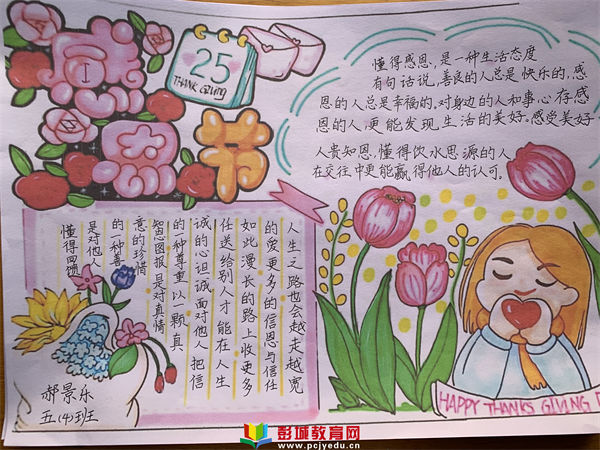 感恩节
25
THANK GIVING
懂得感恩,是一种生活态度
有句话说,善良的人总是快乐的,感
恩的人总是幸福的,对身边的人和事心存感
恩的人,更能发现生活的美好,感受美好
人贵知恩,懂得饮水思源的人
在交往中更能赢得他人的认可。
懂得回馈
是对他人
的一种善
意的珍惜
知恩图报是对真情
的种尊重以一颗真
诚的心坦诚面对他人把信
任送给别人才能在人生
如此漫长的路上收更多
的爱更多的信恩与信任
人生之路也会越走越宽
郝景乐
五(4)班
HAPPY THANKS GIVING
彭城教育网
www.pcjyedu.cn